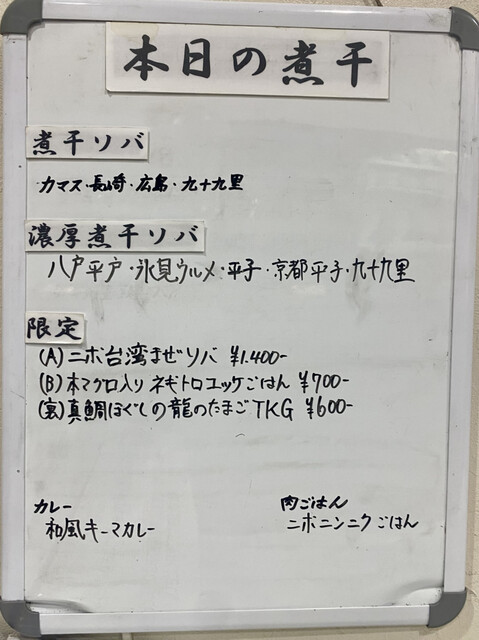 本日の煮干
煮干ソバ
カマス・長崎・広島・九十九里
濃厚煮干ソバ
八戸平戸・氷見ウルメ・平子・京都平子・九十九里
限定
(A)ニボ台湾まぜソバ ¥1.400-
(B)本マグロ入りネギトロユッケごはん ¥700-
(裏)真鯛ほぐしの龍のたまごTKG ¥600-
カレー
和風キーマカレー
肉ごはん
ニボニンニクごはん